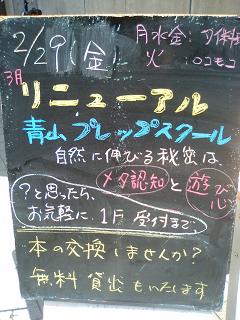 2/29(金)
月水金:
火:ロコモコ
3月
リニューアル
青山プレップスクール
自然に伸びる秘密は、
メタ認知と遊び心
?と思ったら、
お気軽に、1F受付まで
本の交換しませんか?
無料貸出もいたします